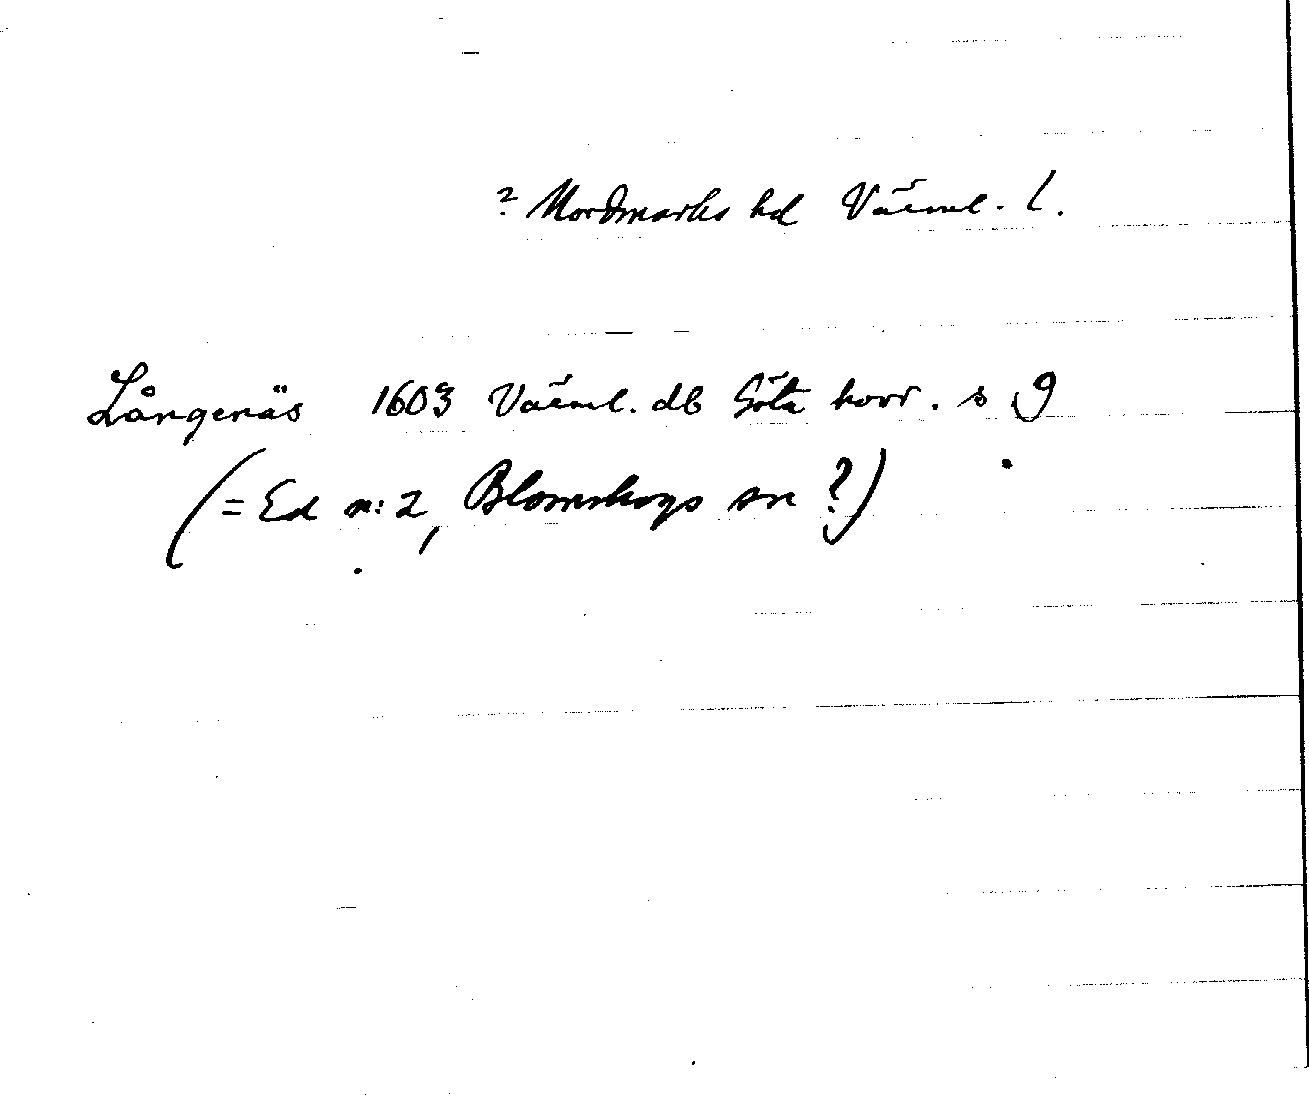 ? Nordmarks hd Värml. l.
Långenäs 1603 Värml. db Göta hovr. s 9
(= Ed n:2, Blomskogs sn ?)